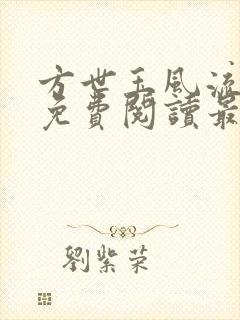 方世玉風流
免費閱讀最
劉紫荣